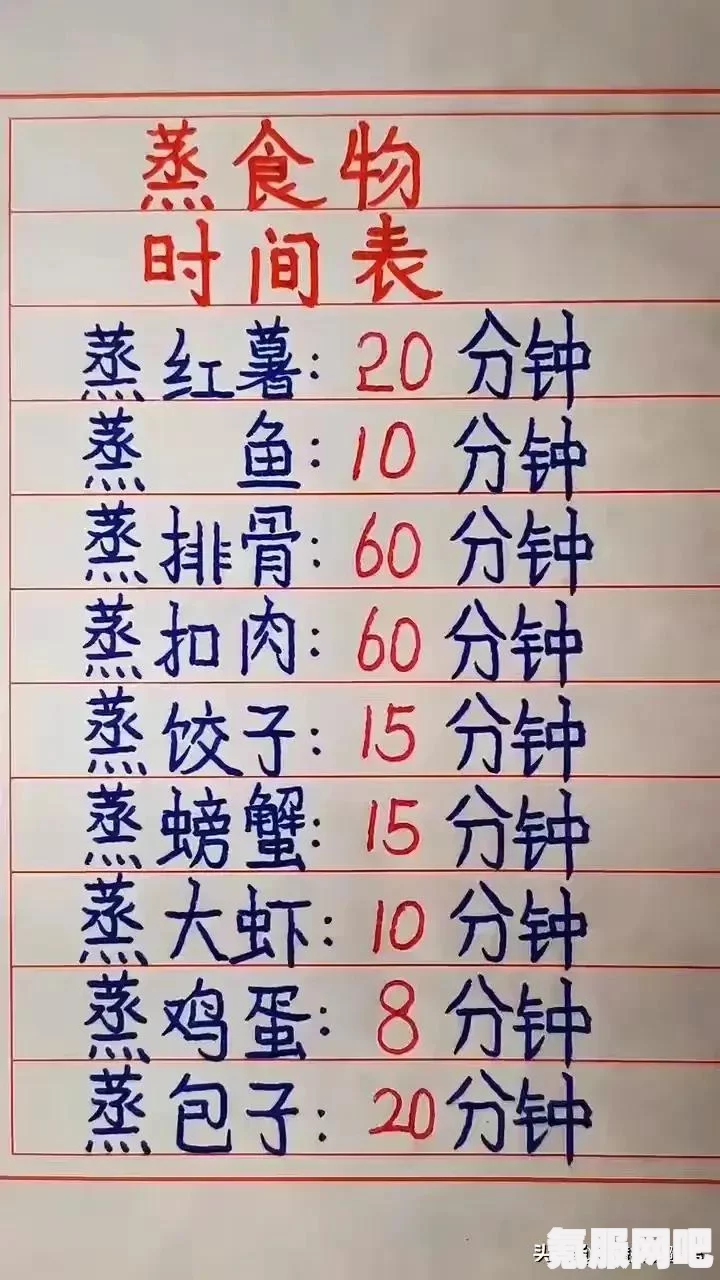 蒸食物
时间表
蒸红薯: 20 分钟
蒸 鱼: 10 分钟
蒸排骨: 60 分钟
蒸扣肉: 60 分钟
蒸饺子: 15 分钟
蒸螃蟹: 15 分钟
蒸大虾: 10 分钟
蒸鸡蛋: 8 分钟
蒸包子: 20 分钟
氪服网吧